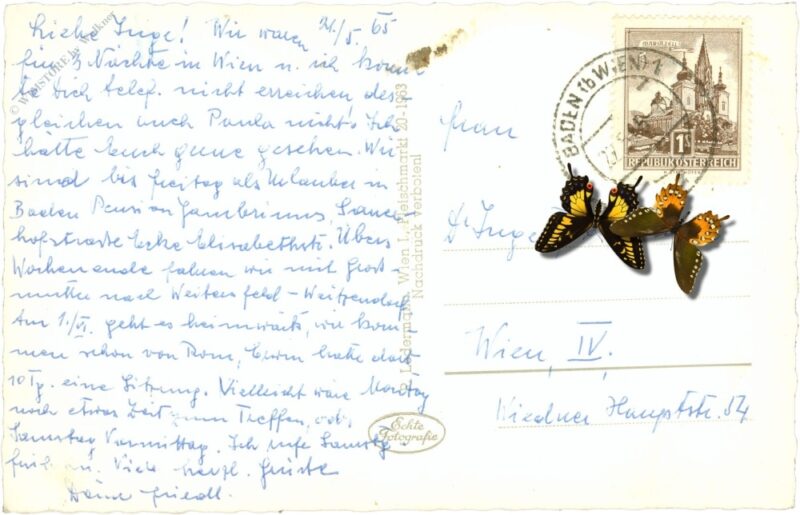 Liebe Inge! Wir waren
24/5. 65
für 3 Nächte in Wien u. ich konn-
te Dich telef. nicht erreichen, des-
gleichen auch Paula nicht. Ich
hätte Euch gerne gesehen. Wir
sind bis Freitag als Urlauber in
Baden Pension Gambrinus, 
hofstraße Ecke Elisabethstr. Übers
Wochenende fahren wir mit Groß-
mutter nach Weitersfeld - Weitzendorf
Am 1./VI. geht es heimwärts, wir kom-
men schon von Rom, Erwin hatte dort
10 Tg. eine Sitzung. Vielleicht wäre Montag
noch etwas Zeit zum Treffen, od.
Samstag Vormittag. Ich rufe Samstg
früh u. Viele herzl. Grüße
Deine Friedl.
© WEBSTORE by Wellner
P. Ledermann, Wien I., Fleischmarkt 20 - 1963
Nachdruck verboten!
Echte
Fotografie
MARIAZELL
1 S
REPUBLIK ÖSTERREICH
BADEN (b WIEN) 1
Frau
Dr Inge
Wien, IV.
Wiedner Hauptstr. 54